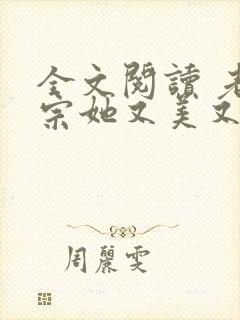 全文閱讀 老
宗她又美又
周麗雯